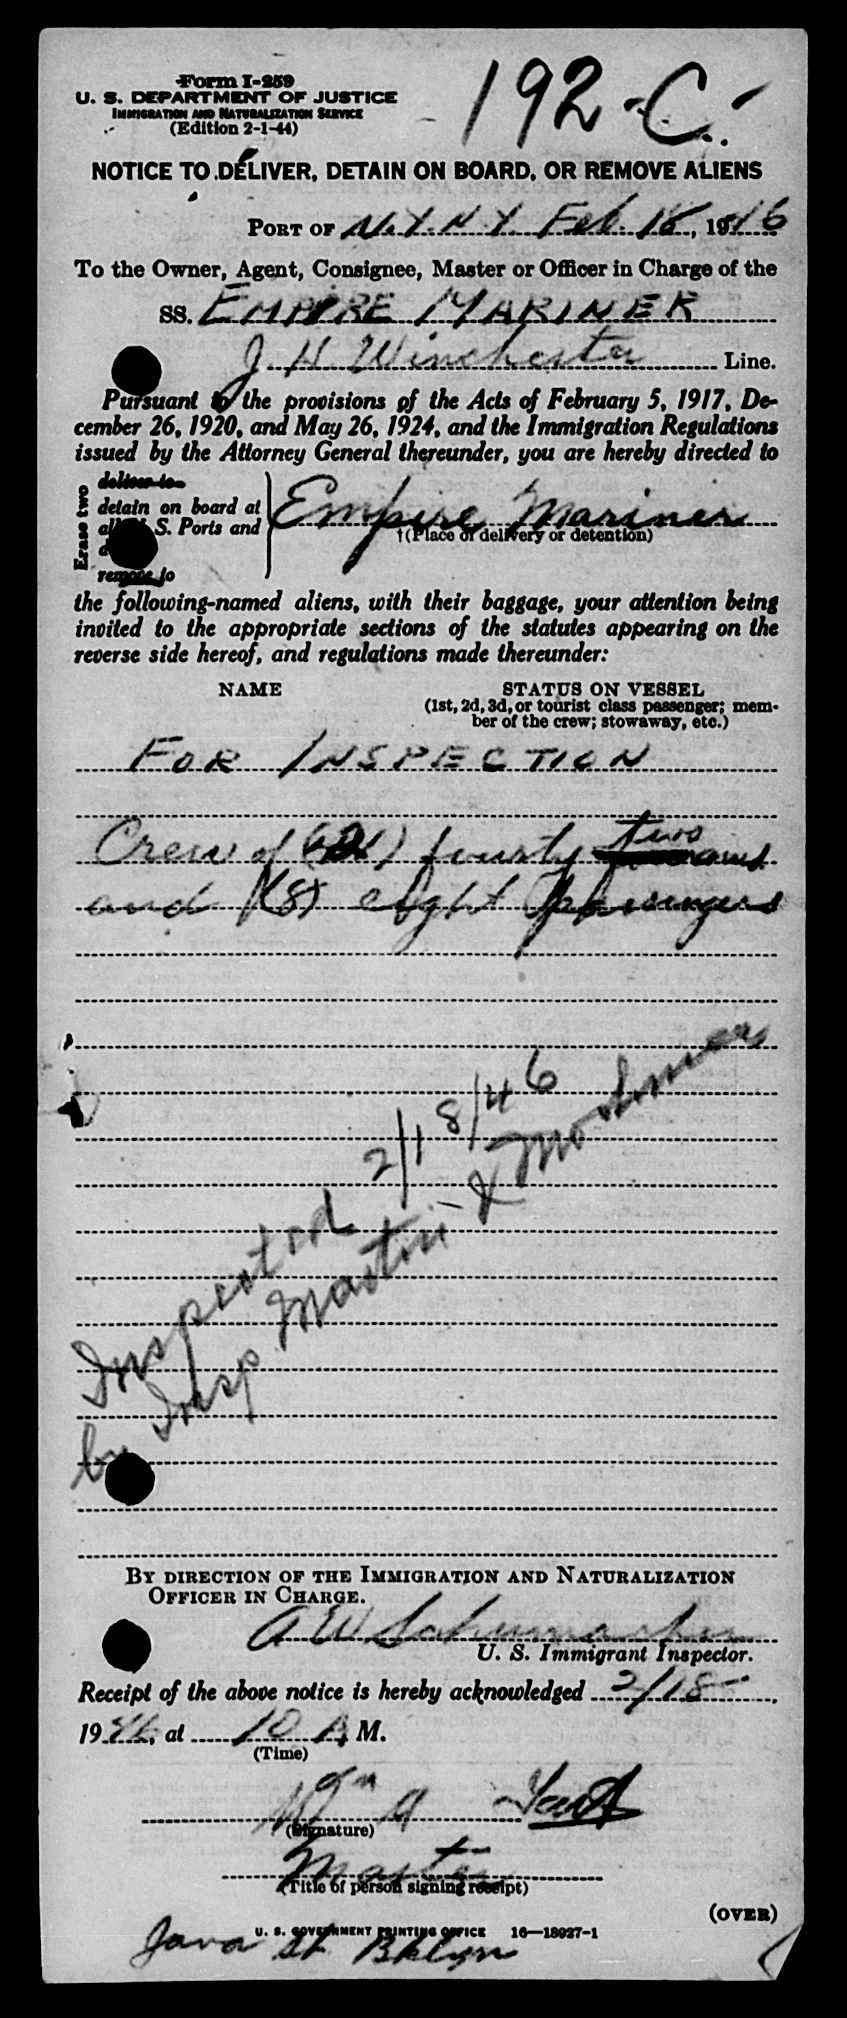 Form I-259
U. S. DEPARTMENT OF JUSTICE
IMMIGRATION AND NATURALIZATION SERVICE
(Edition 2-1-44)
192-C.
NOTICE TO DELIVER, DETAIN ON BOARD, OR REMOVE ALIENS
PORT OF N.Y. N Y. Feb. 18, 1946
To the Owner, Agent, Consignee, Master or Officer in Charge of the
SS. EMPIRE MARINER
J. H Winchester Line.
Pursuant to the provisions of the Acts of February 5, 1917, De-
cember 26, 1920, and May 26, 1924, and the Immigration Regulations
issued by the Attorney General thereunder, you are hereby directed to
Erase two
deliver to
detain on board at
all U. S. Ports and
remove to
Empire Mariner
†(Place of delivery or detention)
the following-named aliens, with their baggage, your attention being
invited to the appropriate sections of the statutes appearing on the
reverse side hereof, and regulations made thereunder:
NAME
STATUS ON VESSEL
(1st, 2d, 3d, or tourist class passenger; mem-
ber of the crew; stowaway, etc.)
FOR INSPECTION
Crew of (42) fourty two
and (8) eight passengers
Inspected 2/18/46
by Insp. Martin &
BY DIRECTION OF THE IMMIGRATION AND NATURALIZATION
OFFICER IN CHARGE.
A W Schumacher
U. S. Immigrant Inspector.
Receipt of the above notice is hereby acknowledged 2/18,
1946, at 10 A. M.
(Time)
Wm A
(Signature)
Master
(Title of person signing receipt)
(OVER)
U. S. GOVERNMENT PRINTING OFFICE 16—18927-1
Java St. Bklyn